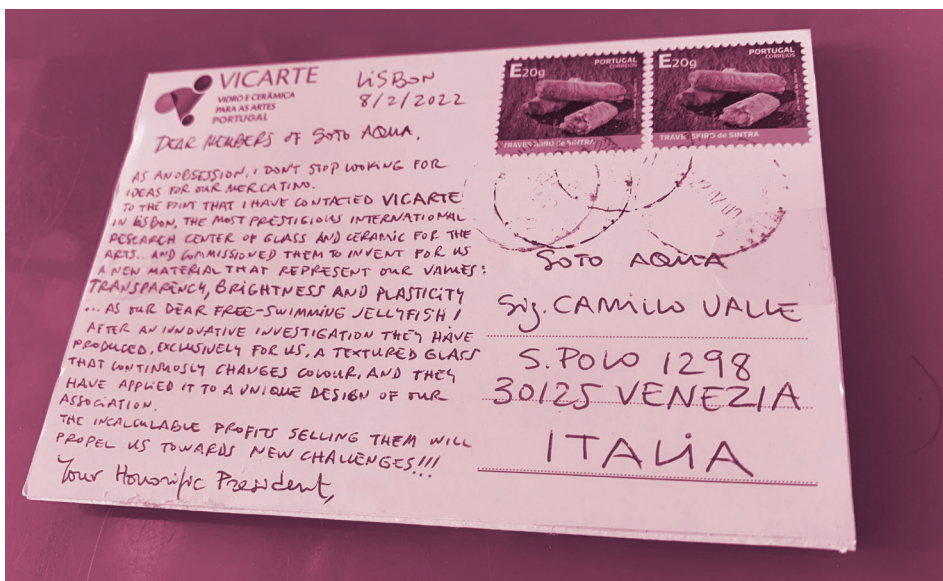 VICARTE
VIDRO E CERÂMICA
PARA AS ARTES
PORTUGAL
LISBON
8/2/2022
DEAR MEMBERS OF SOTO AQUA,
AS AN OBSESSION, I DON'T STOP LOOKING FOR
IDEAS FOR OUR MERCATINO.
TO THE POINT THAT I HAVE CONTACTED VICARTE
IN LISBON, THE MOST PRESTIGIOUS INTERNATIONAL
RESEARCH CENTER OF GLASS AND CERAMIC FOR THE
ARTS... AND COMMISSIONED THEM TO INVENT FOR US
A NEW MATERIAL THAT REPRESENT OUR VALUES:
TRANSPARENCY, BRIGHTNESS AND PLASTICITY
... AS OUR DEAR FREE-SWIMMING JELLYFISH!
AFTER AN INNOVATIVE INVESTIGATION THEY HAVE
PRODUCED, EXCLUSIVELY FOR US, A TEXTURED GLASS
THAT CONTINUOSLY CHANGES COLOUR, AND THEY
HAVE APPLIED IT TO A UNIQUE DESIGN OF OUR
ASSOCIATION.
THE INCALCULABLE PROFITS SELLING THEM WILL
PROPEL US TOWARDS NEW CHALLENGES!!!
Your Honorific President,
E20g
PORTUGAL
CORREIOS
TRAVESSEIRO DE SINTRA
E20g
PORTUGAL
CORREIOS
TRAVESSEIRO de SINTRA
SOTO AQUA
Sig. CAMILLO VALLE
S. POLO 1298
30125 VENEZIA
ITALIA